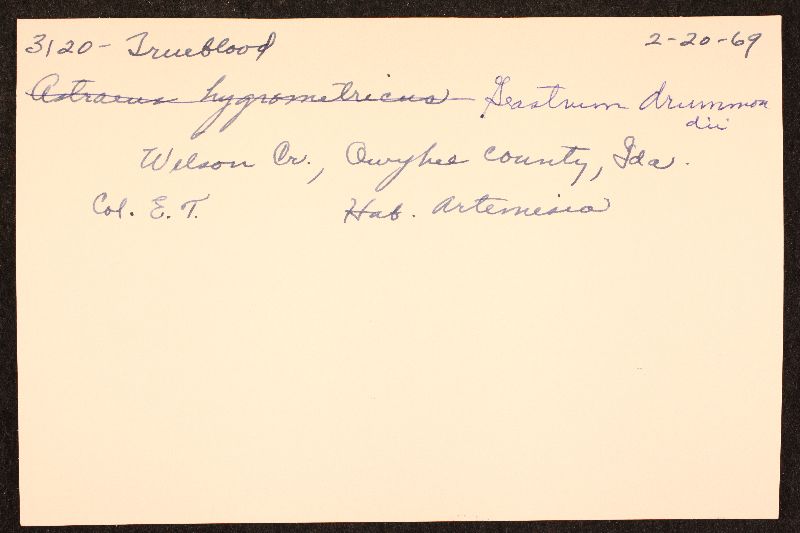 3120 - Trueblood 2-20-69
Astraeus hygrometricus Geastrum drummon
dii
Wilson Cr., Owyhee County, Ida.
Col. E. T. Hab. Artemisia